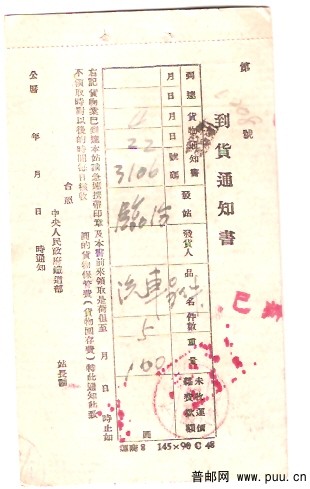 第 號
到貨通知書
到達 月 日
貨物通知書 月 日 號
發站
發貨人
品名
件數
重量
未收運價雜費款額
4
22
3106
臨汾
汽車
5
100
已
前記貨物業已到達本站請急速攜帶印章及本書前來領取是荷但至 月 日 時止如
不領取時對以後的時間每日核收 圓的貨物保管費(貨物留存費)特此通知此致
台照
中央人民政府鐵道部
站長
公曆 年 月 日 時通知
145×90 C 48
普邮网 www.puu.cn